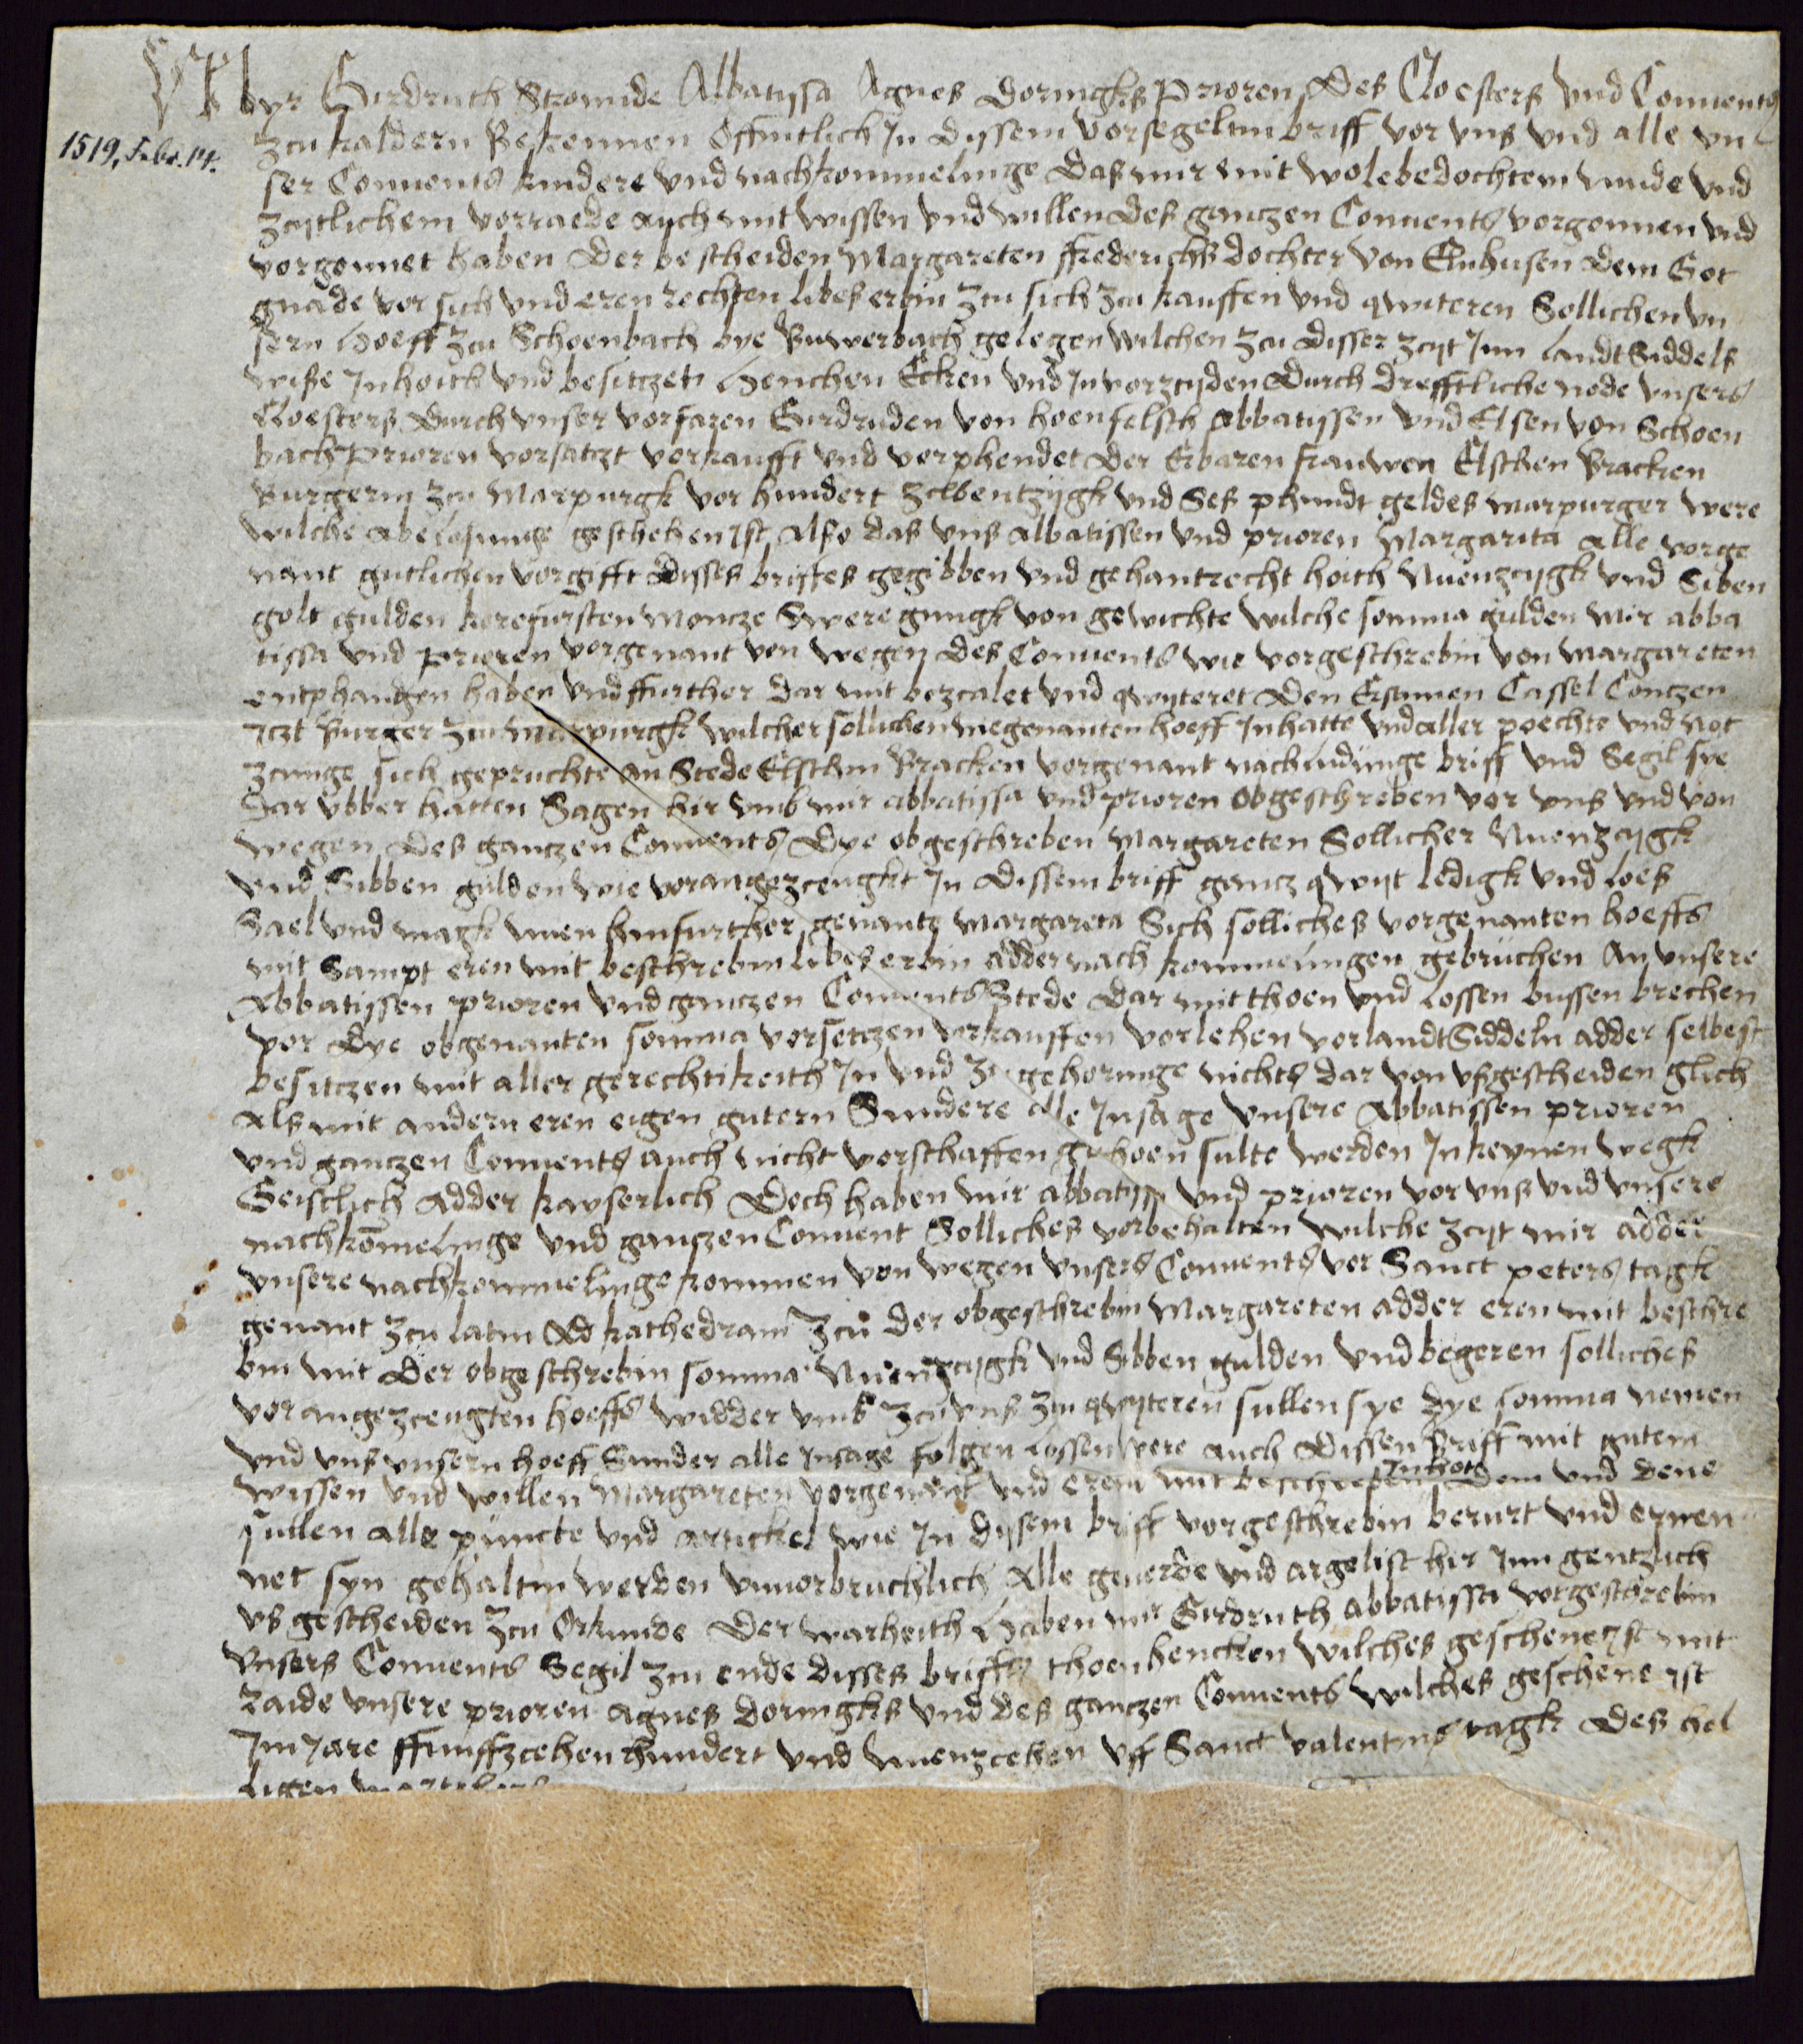 Wyr Girdruth Stromide Abbatissa Agnes Doringks Prioren Des Cloesters vnd Conuents
1519, Febr. 14.
zcu kaldern Bekennen Offintlich Jn dyssem vorsegeltin briff vor vns vnd alle vn
ser Conuents kindere vnd nachkommelinge Das mir mit wolebedochtem mude vnd
zcytlichem vorraede auch mit wissen vnd willen des ganczen Conuents vorgonnen vnd
vorgonnet haben Der bescheiden Margareten ffrederichs dochter von Elnhusen dem Got
gnade vor sich vnd eren rechten libes erbin zcu sich zcu kauffen vnd qwiteren Sollichen vn
sern Hoeff zcu Schoenbach bye Buwerbach gelegen wilchen zcu disser zcyt Jnn landtSiddels
wise Jnhoith vnd besitczet Henchen Ecken vnd Jn vorzcyden Durch drefftliche node vnsers
Cloesters durch vnser vorfaren Girdruden von hoenfelsch Abbatissen vnd Elsen von Schoen
bach Prioren vorsatczt verkaufft vnd verphendet der Erbaren frauwen Elschen Bracken
Burgerin zcu Marpurgk vor hundert Selbentzijgk vnd Ses phundt geldes marpurger were
wilche abelosunge gescheen Jst Also das vns Abbatissen vnd prioren Margarita alle vorge
nant gutlichen vorgifft disses briffes gegibben vnd gehantrecht hoith Nuenzcijgk vnd Siben
golt gulden korefursten moncze Swere gungk von gewichte wilche somma gulden mir abba
tissa vnd prioren vorgenant von wegen des Conuents wie vorgeschrebin von margareten
entphangen haben vnd ffurther dar mit bezcalet vnd qwyteret den Ersamen Cassel Conczen
Jczt Burger zcu Marpurgk wilcher sollichen megenanten hoeff Jnhatte vnd aller poechte vnd not
zcunge sich gepruchte an Stede Elschin Bracken vorgenant nach ludunge briff vnd Segil sye
Dar vbber hatten Sagen hir vmb mir abbatissa vnd prioren Obgeschreben vor vns vnd von
wegen des ganczen Conuents Dye obgeschreben Margareten Sollicher Nuenzcijgk
vnd Sibben gulden wie vorangezceugkt Jn dissem briff gancz qwyt ledigk vnd loes
Sael vnd magk nuen hinfurther genante Margareta Sich solliches vorgenanten hoeffs
mit Sampt eren mit beschrebin libes erbin adder nach kommelingen gebruchen An vnsere
Abbatissen prioren vnd ganczen Conuents Stede dar mit thoen vnd lossen bussen brechen
vor dye obgenanten somma vorsetczen verkauffen vorlehen vorlandtSiddeln adder selbest
besitczen mit aller gerechtikeith Jn vnd zcugehoringe nichts dar von vsgescheiden glich
Als mit andern eren eigen gutern Sundere alle Jnsage vnsere Abbatissen prioren
vnd ganczen Conuents auch nicht vorschaffen gethoen sulte werden Jn keynen wegk
Geistlich adder kayserlich Doch haben mir abbatissa vnd prioren vor vns vnd vnsere
nachkomelinge vnd ganczen Conuent Solliches vorbehalten wilche zcyt mir adder
vnsere nachkommelinge kommen von wegen vnsers Conuents vor Sanct peters tagk
genant zcu latin Ad kathedram zcu der obgeschrebin Margareten adder eren mit beschre
bin mit der obgeschrebin somma Nuenzcijgk vnd Sibben gulden vnd begeren solliches
vorangezceugten hoeffs widder vmb zcu vns zcu qwyteren sullen sye dye somma nemen
vnd vns vnsern hoeff Sunder alle Jnsage folgen lossen were auch dissen Briff mit gutem
wissen vnd willen Margareten vorgenant vnd eren mit beschreben Jnhot dem vnd deme
sullen alle puncte vnd artickel wie Jn dysem briff vorgeschrebin berurt vnd ernen
net syn gehaltin werden vnuorbruchlich Alle geuerde vnd argelist hir Jnn gentzlich
vsgescheiden zcu Orkunde Der warheith Haben mir Girdruth abbatissa vorgeschrebin
vnsers Conuents Segil zcu ende disses briffs thoen hencken wilches geschene Jst mit
Raide vnsere prioren Agnes doringks vnd des ganczen Conuents wilches geschene Jst
Jm Jare ffunffzcehen hundert vnd nuenzcehen vff Sanct valentins tagk des hel
ligen